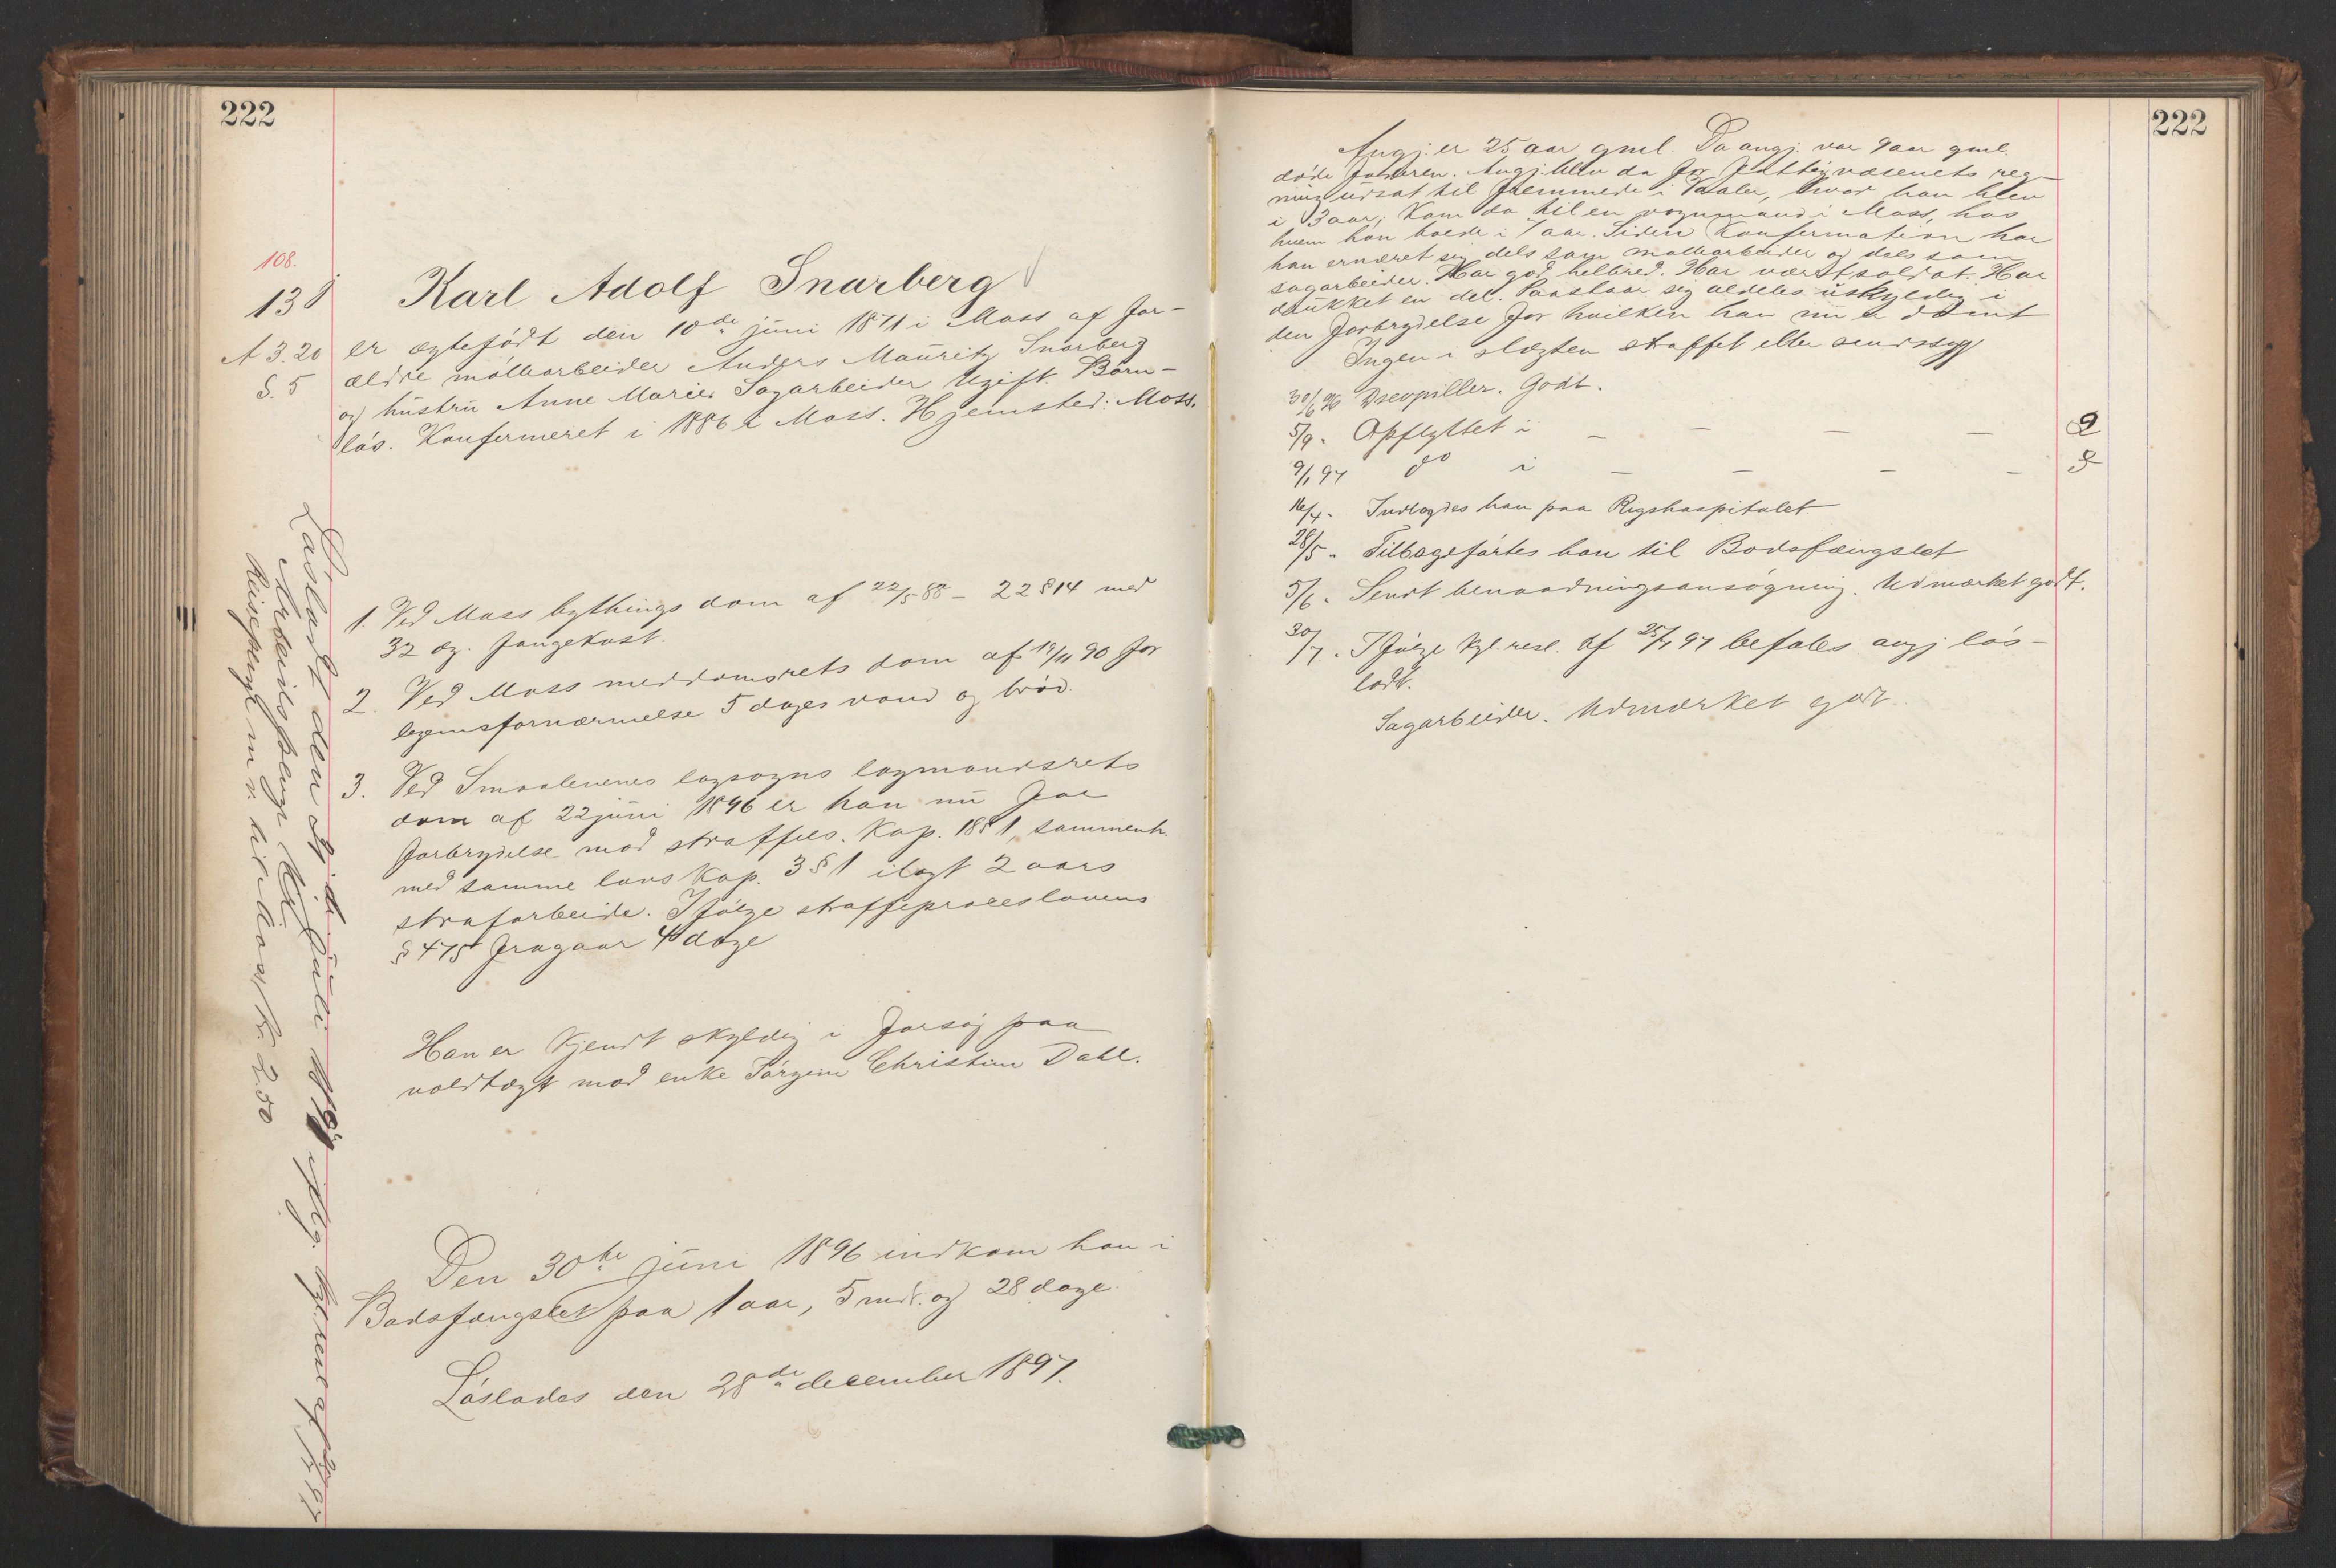 222
108.
138
A 3.20
S. 5
Karl Adolf Snarberg
er ægtefødt den 10de juni 1871 i Moss af for-
ældre møllearbeider Anders Mauritz Snarberg
og hustru Anne Marie. Sagarbeider Ugift. Barn-
løs. Konfirmeret i 1886 i Moss. Hjemsted: Moss.
1. Ved Moss bythings dom af 22/5 88 – 22 § 14 med
32 dg. fangekost.
2. Ved Moss meddomsrets dom af 19/11 90 for
legemsfornærmelse 5 dages vand og brød.
3. Ved Smaalenenes lagsogns lagmandsrets
dom af 22 juni 1896 er han nu for
forbrydelse mod straffels. Kap. 18 § 1, sammenh.
med samme lovs Kap. 3 § 1 ilagt 2 aars
strafarbeide. Ifølge straffeproceslovens
§ 475 fragaar 4 dage
Han er kjendt skyldig i forsøg paa
voldtægt mod enke Jørgine Christine Dahl.
Den 30te juni 1896 indkom han i
Bodsfængslet paa 1 aar, 5 mdr. og 28 dage.
Løslades den 28de december 1897.
Løsladt den juli 1897 ifølg. kgl. res. af 25/7 97
Arbeidspenge
Reisepenge kr. 2.50
222
Angj. er 25 aar gml. Da angj. var 9 aar gml.
døde faderen. Angj. blev da for fattigvæsenets reg-
ning udsat til fremmede i Vaaler, hvor han blev
i 3 aar; kom da til en vognmand i Moss, hos
hvem han boede i 1 aar. Siden konfirmation har
han ernæret sig dels som møllearbeider og dels som
sagarbeider. Har god helbred. Har været soldat. Har
drukket en del. Paastaar sig aldeles uskyldig i
den forbrydelse for hvilken han nu er dømt
Ingen i slægten straffet eller sindssyg
30/6 96 Drevpiller. Godt.
5/9 " Opflyttet i – – – – 2
9/1 97 do i – – – – 3
16/4 " Indlagdes han paa Rigshospitalet.
28/5 " Tilbageførtes han til Bodsfængslet
5/6 " Sendt benaadningsansøgning. Udmærket godt.
30/7 " Ifølge kgl. resl. af 25/7 97 befales angj løs-
ladt.
Sagarbeider. Udmærket godt.